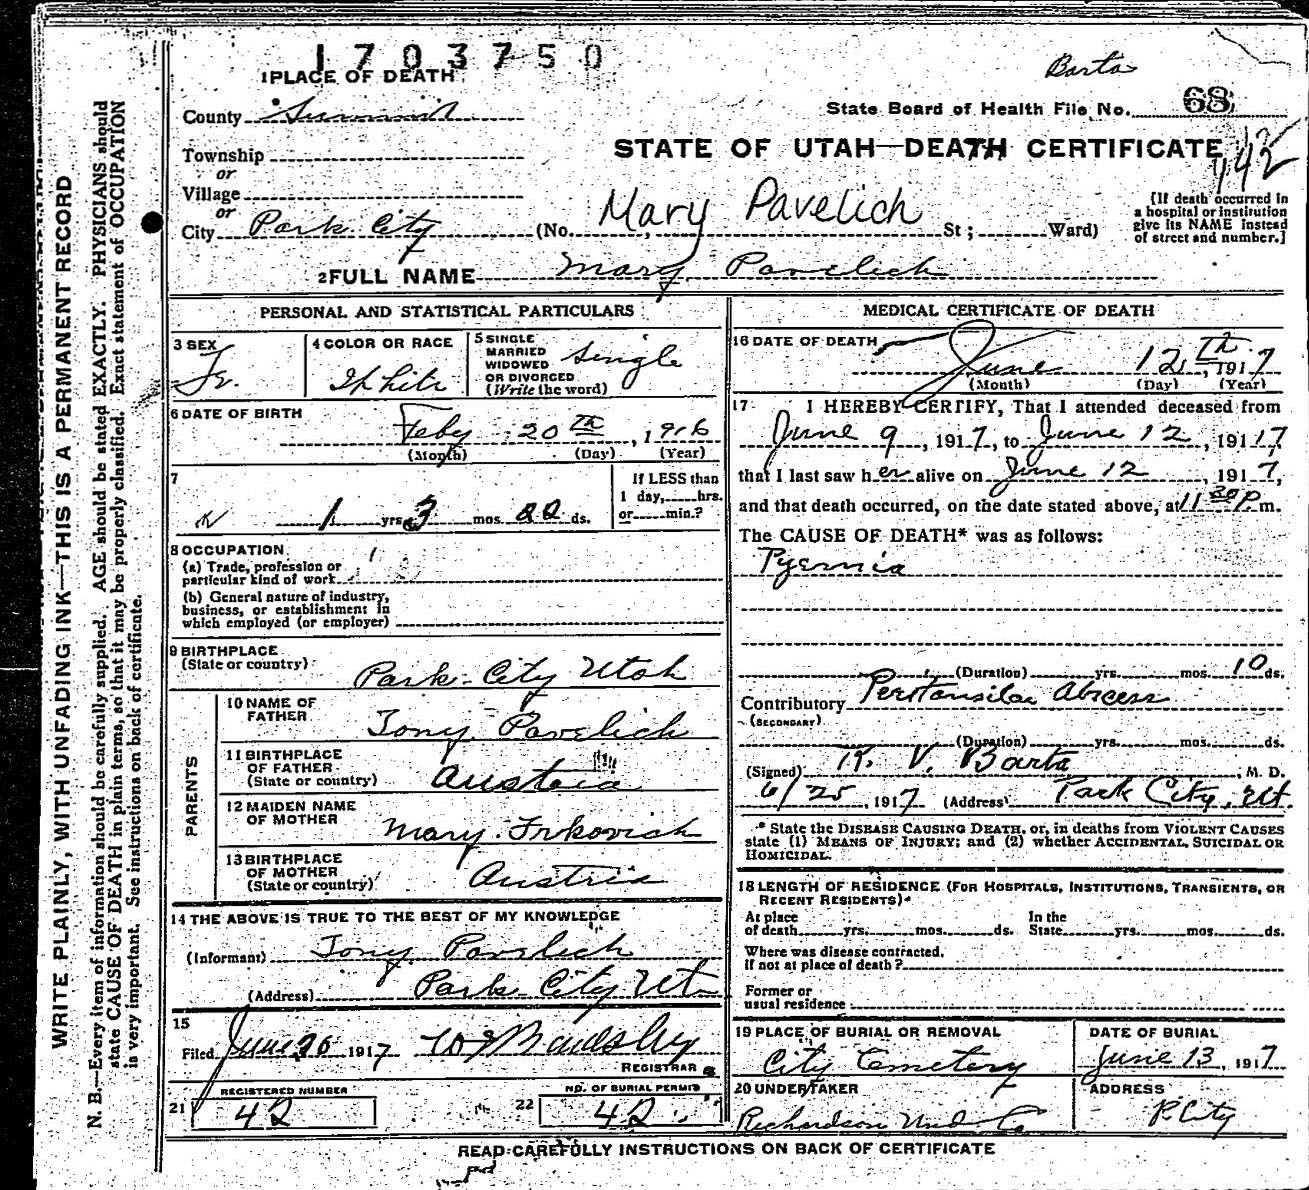 1703750
1 PLACE OF DEATH
Barta
County Summit
State Board of Health File No. 68
Township
STATE OF UTAH—DEATH CERTIFICATE
142
or
Village
or
Mary Pavelich
City Park City (No. St; Ward)
[If death occurred in
a hospital or institution
give its NAME instead
of street and number.]
2 FULL NAME Mary Pavelich
PERSONAL AND STATISTICAL PARTICULARS
3 SEX
Fe.
4 COLOR OR RACE
White
5 SINGLE
MARRIED
WIDOWED
OR DIVORCED
(Write the word)
Single
6 DATE OF BIRTH
Feby 20th, 1916
(Month) (Day) (Year)
7
1 yrs. 3 mos. 22 ds.
If LESS than
1 day, hrs.
or min.?
8 OCCUPATION
(a) Trade, profession or
particular kind of work
(b) General nature of industry,
business, or establishment in
which employed (or employer)
9 BIRTHPLACE
(State or country)
Park City Utah
PARENTS
10 NAME OF
FATHER
Tony Pavelich
11 BIRTHPLACE
OF FATHER
(State or country)
Austria
12 MAIDEN NAME
OF MOTHER
Mary Frkovich
13 BIRTHPLACE
OF MOTHER
(State or country)
Austria
14 THE ABOVE IS TRUE TO THE BEST OF MY KNOWLEDGE
(Informant) Tony Pavelich
(Address) Park City Ut
15
Filed June 26 1917
REGISTRAR
REGISTERED NUMBER
21 42
NO. OF BURIAL PERMIT
22 42
MEDICAL CERTIFICATE OF DEATH
16 DATE OF DEATH
June 12th, 1917
(Month) (Day) (Year)
17 I HEREBY CERTIFY, That I attended deceased from
June 9, 1917, to June 12, 19117
that I last saw her alive on June 12, 1917,
and that death occurred, on the date stated above, at 11 30 P. m.
The CAUSE OF DEATH* was as follows:
Pyemia
(Duration) yrs. mos. 10 ds.
Contributory Peritonsilar Abscess
(SECONDARY)
(Duration) yrs. mos. ds.
(Signed) R. V. Barta, M. D.
6/25, 1917 (Address) Park City, Ut.
* State the DISEASE CAUSING DEATH, or, in deaths from VIOLENT CAUSES
state (1) MEANS OF INJURY; and (2) whether ACCIDENTAL, SUICIDAL OR
HOMICIDAL.
18 LENGTH OF RESIDENCE (FOR HOSPITALS, INSTITUTIONS, TRANSIENTS, OR
RECENT RESIDENTS)
At place
of death yrs. mos. ds.
In the
State yrs. mos. ds.
Where was disease contracted,
if not at place of death?
Former or
usual residence
19 PLACE OF BURIAL OR REMOVAL
City Cemetery
DATE OF BURIAL
June 13, 1917
20 UNDERTAKER
Richardson Und Co
ADDRESS
P. City
READ CAREFULLY INSTRUCTIONS ON BACK OF CERTIFICATE
WRITE PLAINLY, WITH UNFADING INK—THIS IS A PERMANENT RECORD
N. B.—Every item of information should be carefully supplied. AGE should be stated EXACTLY. PHYSICIANS should
state CAUSE OF DEATH in plain terms, so that it may be properly classified. Exact statement of OCCUPATION
is very important. See instructions on back of certificate.